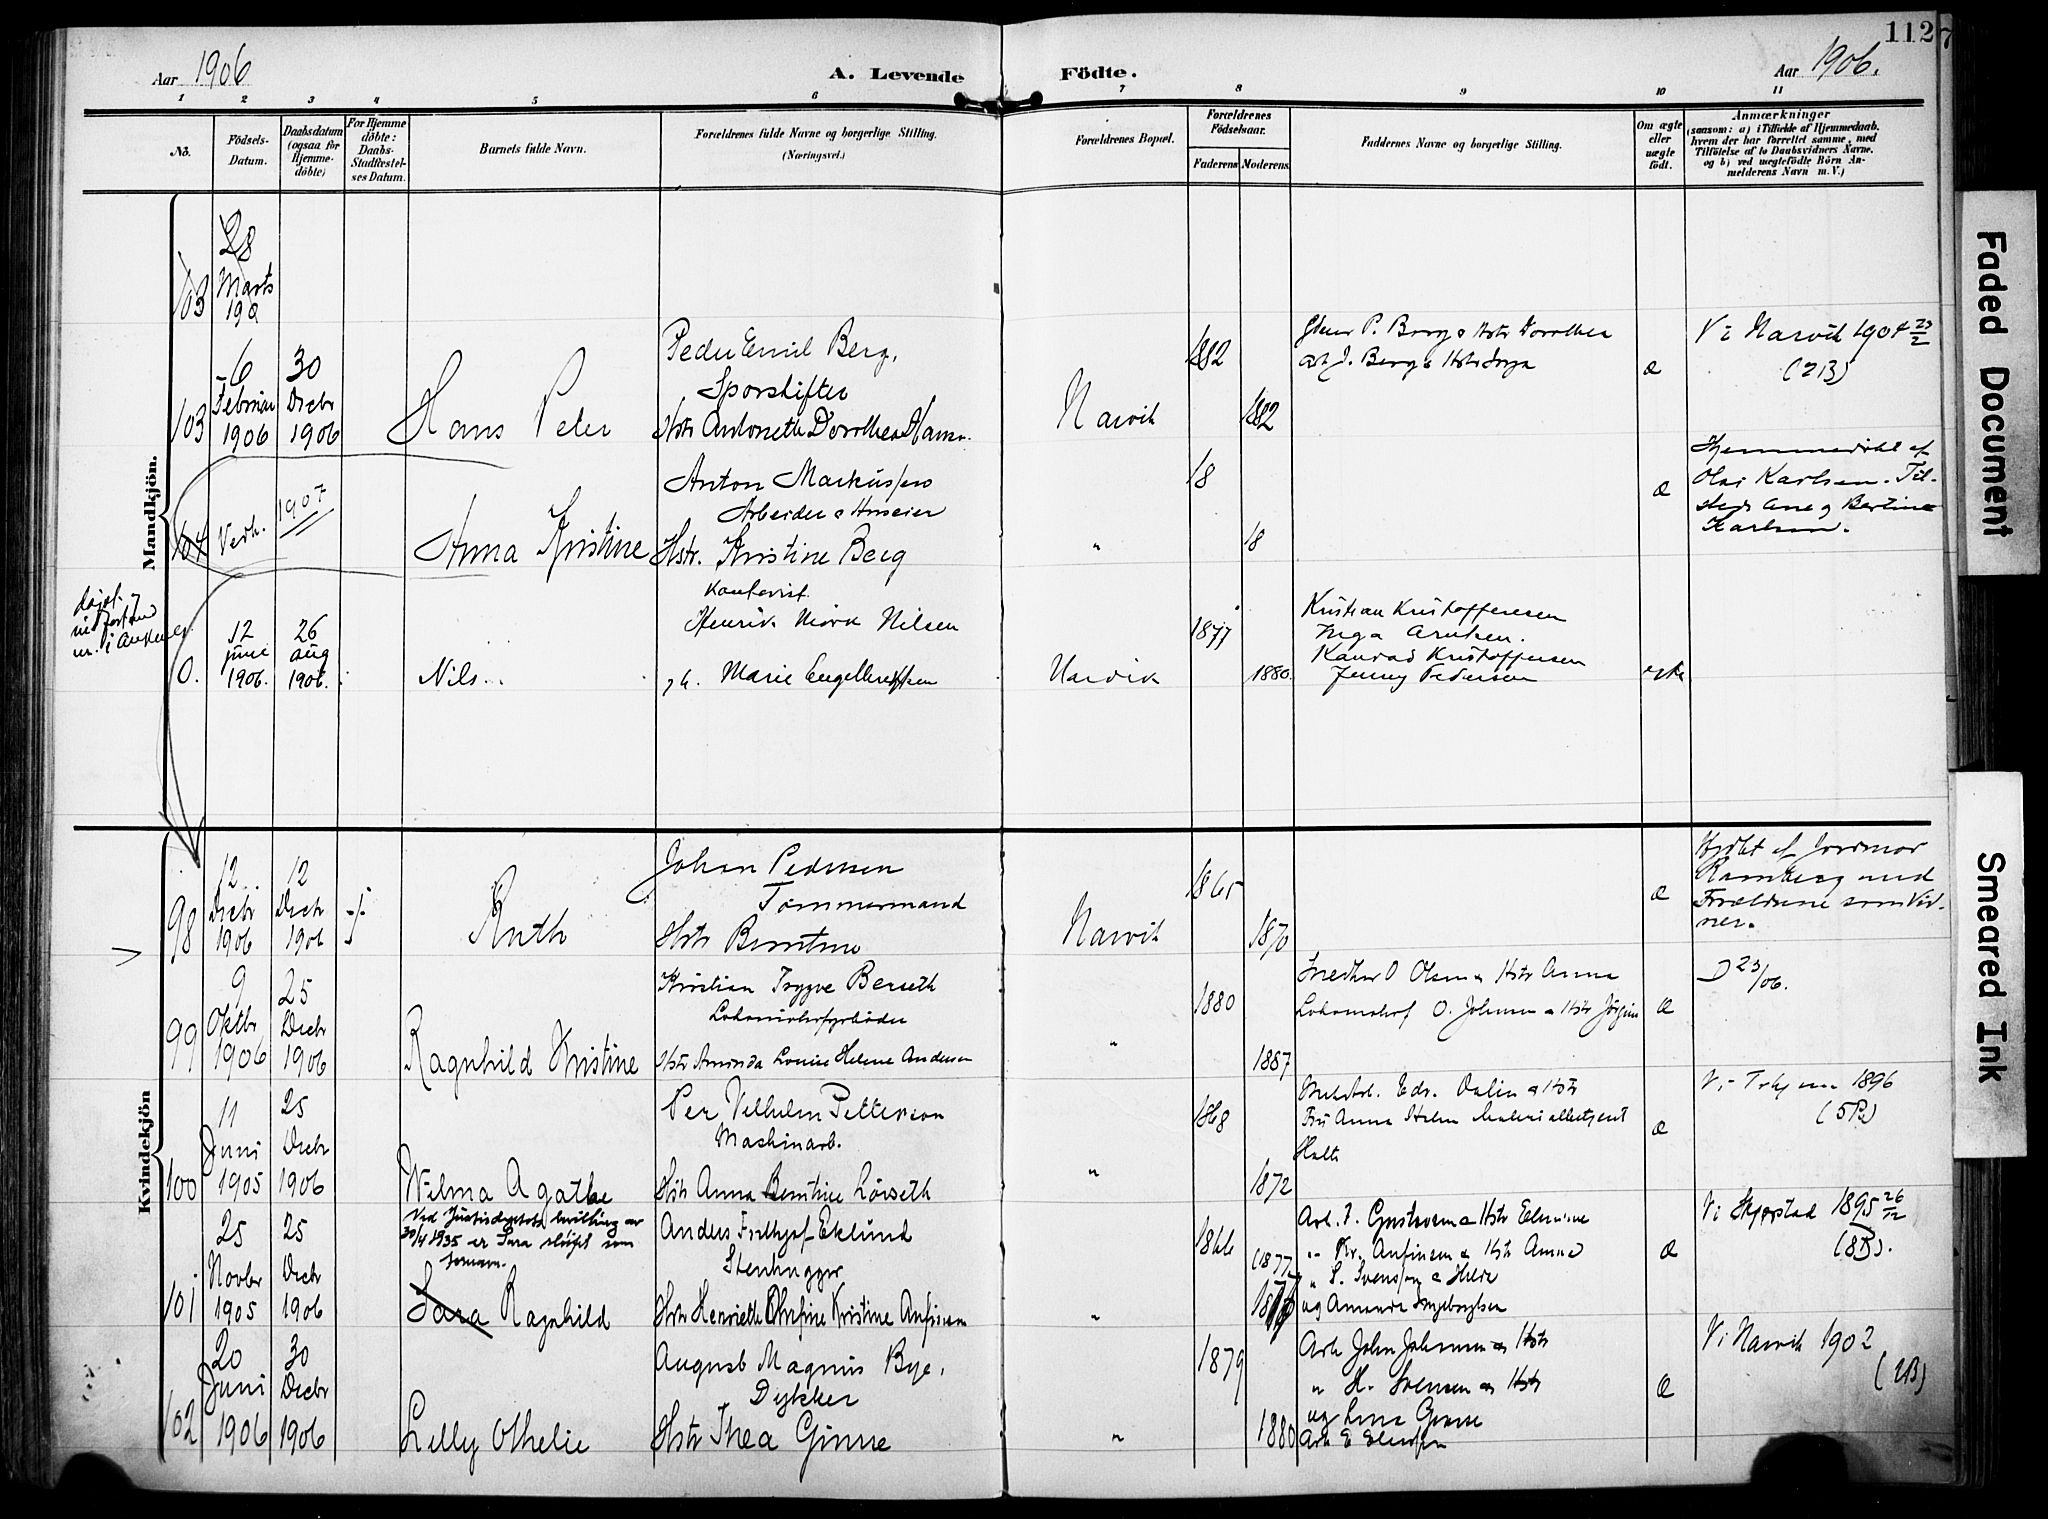 Aar 1906
A. Levende Födte.
Aar 1906.
112
1 2 3 4 5 6 7 8 9 10 11
No.
Födsels-Datum.
Daabsdatum (ogsaa for Hjemme-döbte)
For Hjemme döbte: Daabs-Stadfæstel-ses Datum.
Barnets fulde Navn.
Forældrenes fulde Navne og borgerlige Stilling.
(Næringsvei.)
Forældrenes Bopæl.
Forældrenes Födselsaar.
Faderens Moderens
Faddernes Navne og borgerlige Stilling.
Om ægte eller uægte født.
Anmærkninger
(saasom: a) i Tilfælde af Hjemmedaab.
hvem der har forrettet samme, med
Tilföielse af to Daabsvidners Navne.
og b) ved uægtefödte Börn An-
melderens Navn m. V.)
Mandkjön.
103 28 Marts 190
103
6 Februar 1906
30 Decbr 1906
Hans Peter
Peder Emil Berg,
Sporskifter
Hstr Antonette Dorothea Hansn.
Narvik
1882
1882
æ
Vi Narvik 1904 23/2
(2B)
104
Verh.
1907
Anna Kristine
Anton Markussen
Arbeider
Hstr. Kristine Berg
"
18
18
æ
Hjemmedöbt af
Olai Karlsen. Til-
steds Ane og Bertine
Karlsen.
0.
12 juni 1906.
26 aug 1906.
Nils
Kontorist
Henrik Mörk Nilsen
Marie Engelbrektsen
Narvik
1877
1880.
Kristian Kristoffersen
Inga Arntsen.
Konrad Kristoffersen
Jenny Pedersen
ægte
Kvindekjön
98
12 Decbr 1906
12 Decbr 1906
Ruth
Johan Pedersen
Tömmermand
Hstr Berntine
Narvik
1865
1870
æ
Hjdbt af Jordmor
Ramberg med
Forældrene som Vid-
ner.
99
9 Oktbr 1906
25 Decbr 1906
Ragnhild Kristine
Kristian Trygve Berseth
Lokomotivfyrböder
Hstr Aminda Lovise Helene Andersen
"
1880
1887
Snedker O Olsen & Hstr Anna
O. Johnsen & Hstr
Æ
D 23/06.
100
11 Juni 1905
25 Decbr 1906
Wilma Agathe
Per Vilhelm Petterson
Maskinarb.
Hstr Anna Berntine Lörseth
"
1868
1872
Edv. Dalin & Hstr
Fru Anna Holm
Holte
æ
1896
101
25 Novbr 1905
25 Decbr 1906
Ved Justisdeptets bevilling av
30/4 1935 er Sara sløifet som
fornavn.
Sara Ragnhild
Anders Fridhjof Eklund
Stenhugger
Hstr Henriette Kristine Anfinsen
"
1866
(1877)
Arb. J. Gustavsen & Hstr
" Kr. Anfinsen & Hstr Anna
" S. Svensson & Hilda
og Amanda Ingeborgsen
Æ
Vi Skjerstad 1895 26/12
(8B).
102
20 Juni 1906
30 Decbr 1906
Lilly Othelie
August Magnus Bye,
Dykker
Hstr Thea Ginne
"
1879
1880
Arb John Johnsen & Hstr
" H. Svensen & Hstr
og Lina Ginne
Æ
Vi Narvik 1902
(2B)
Faded Document
Smeared Ink